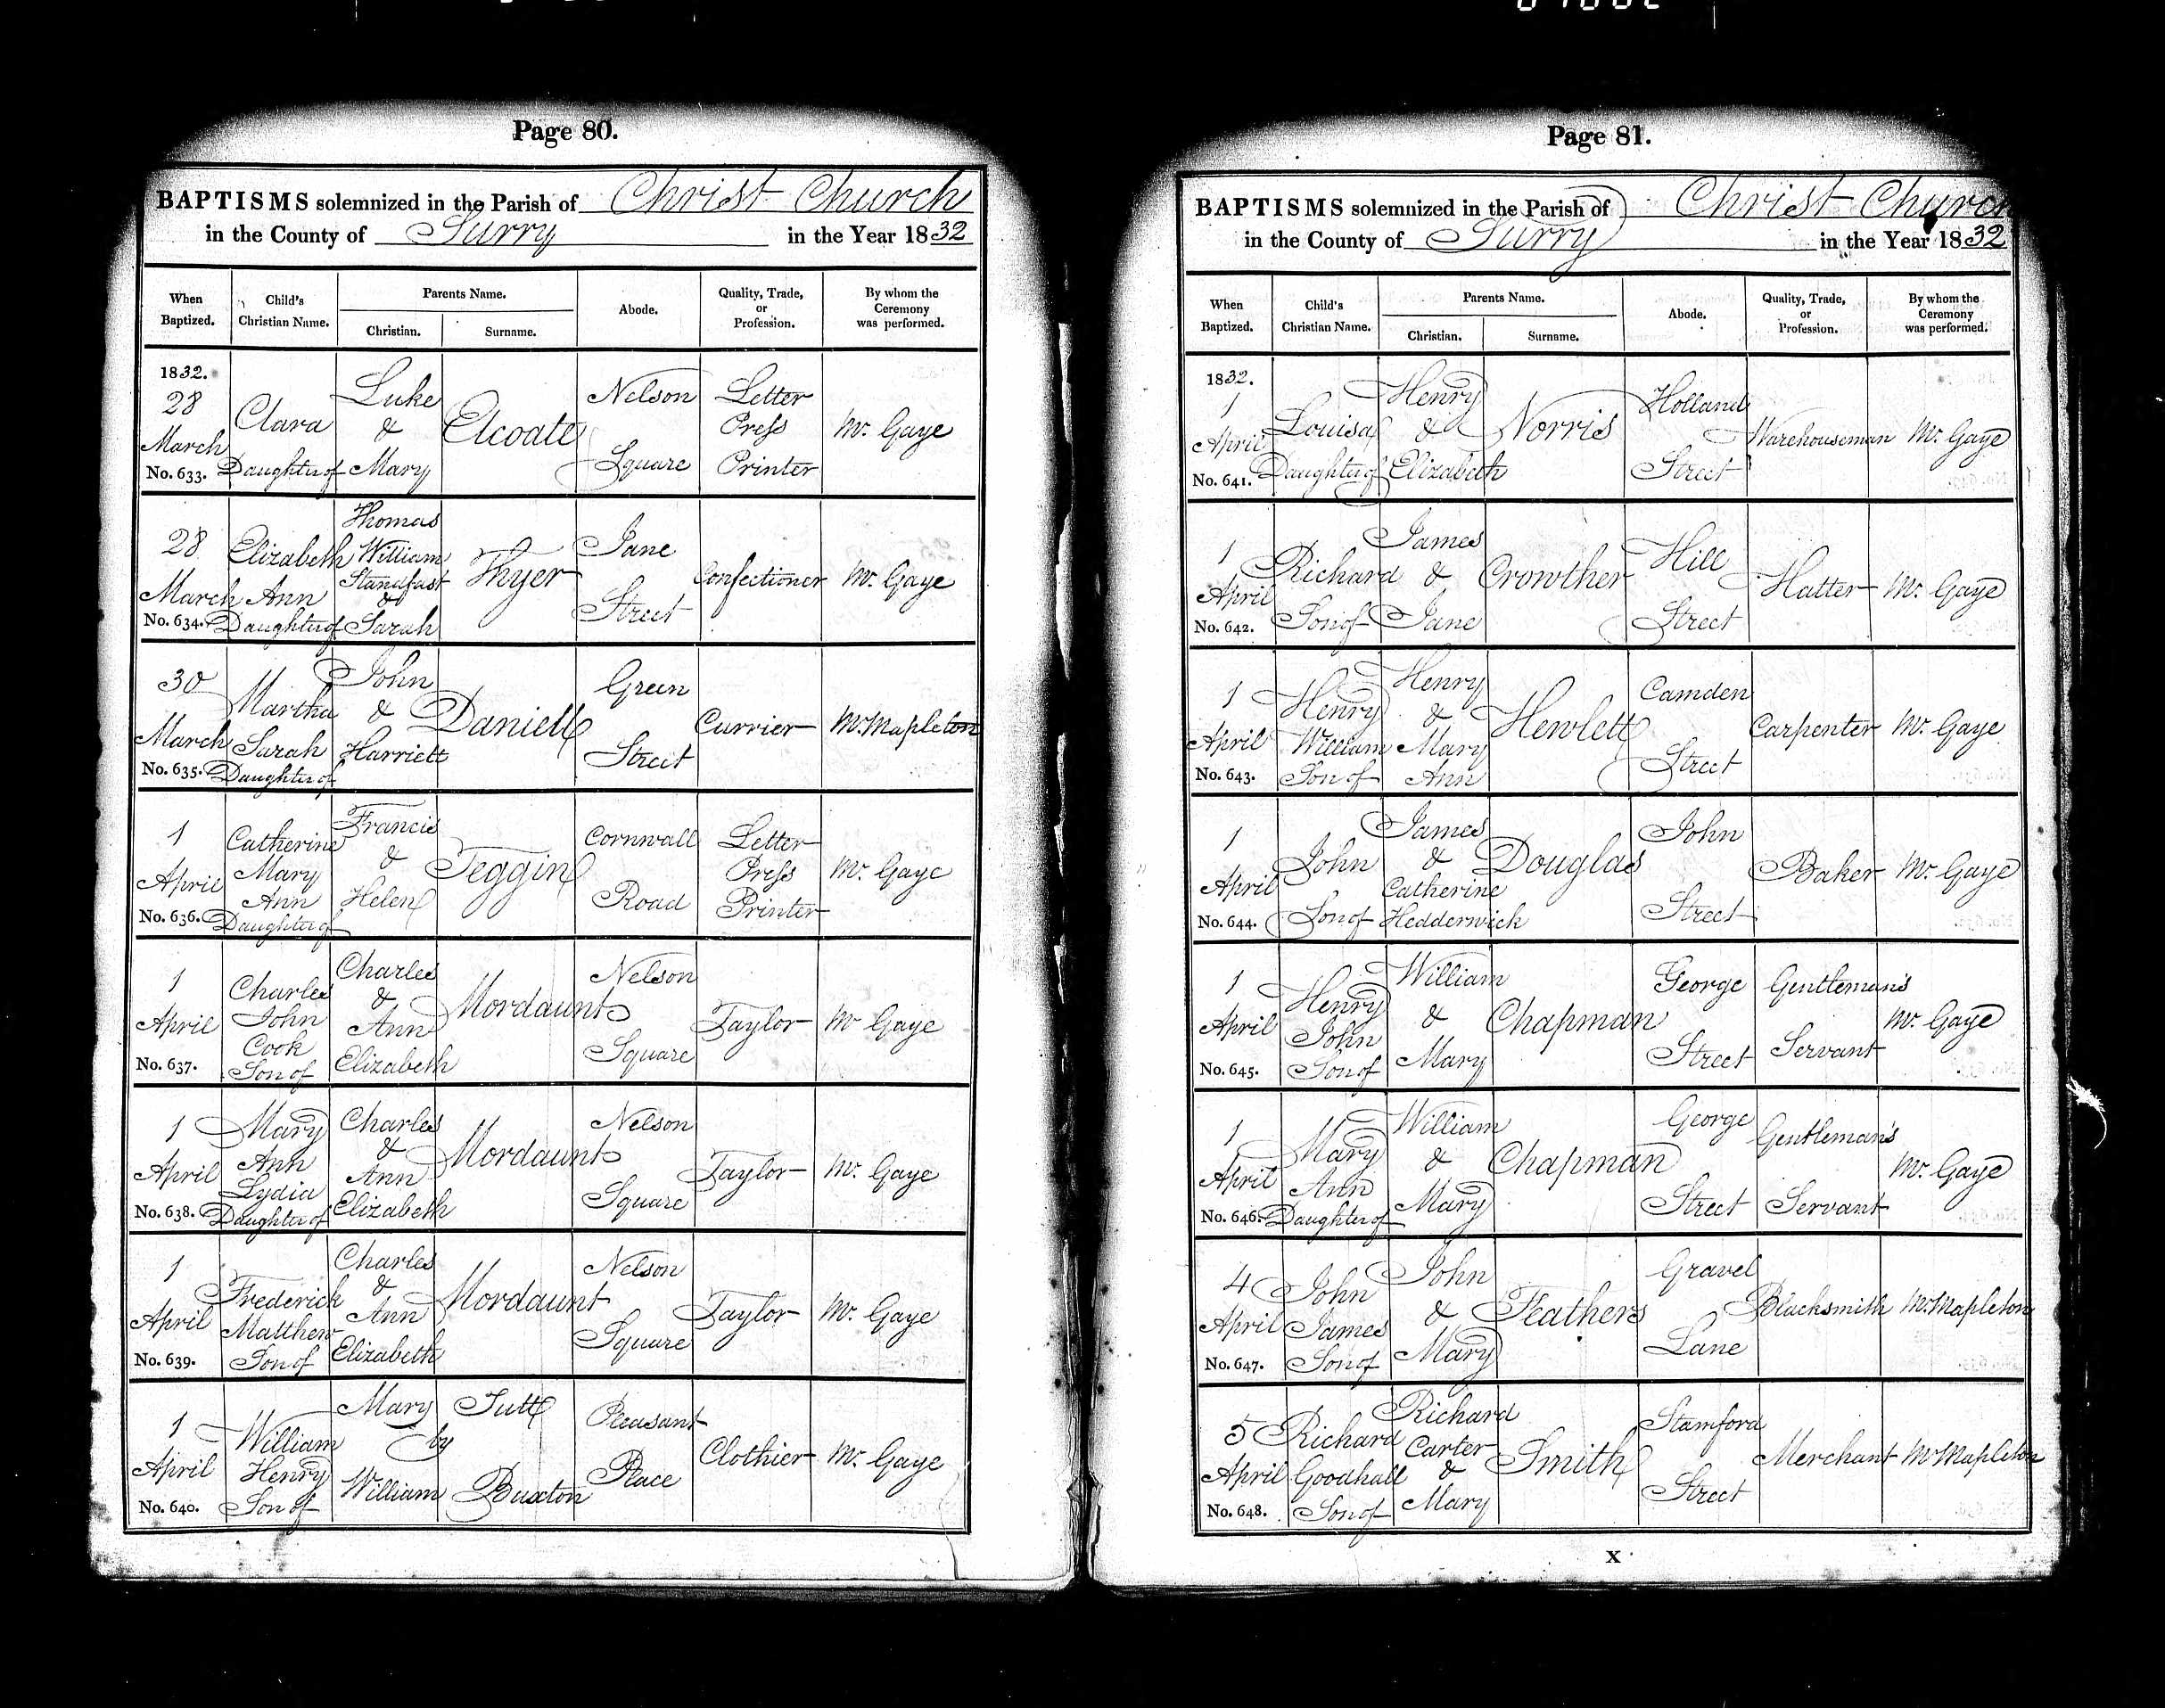 Page 80.
BAPTISMS solemnized in the Parish of Christ Church
in the County of Surry in the Year 1832
When Baptized. Child's Christian Name. Parents Name. Christian. Surname. Abode. Quality, Trade, or Profession. By whom the Ceremony was performed.
1832.
28 March No. 633. Clara Daughter of Luke & Mary Elcoate Nelson Square Letter Press Printer Mr. Gaye
28 March No. 634. Elizabeth Ann Daughter of Thomas William Standfast & Sarah Thyer Jane Street Confectioner Mr. Gaye
30 March No. 635. Martha Sarah Daughter of John & Harriett Daniell Green Street Currier Mr Mapleton
1 April No. 636. Catherine Mary Ann Daughter of Francis & Helen Teggin Cornwall Road Letter Press Printer Mr. Gaye
1 April No. 637. Charles John Cook Son of Charles & Ann Elizabeth Mordaunt Nelson Square Taylor Mr Gaye
1 April No. 638. Mary Ann Lydia Daughter of Charles & Ann Elizabeth Mordaunt Nelson Square Taylor Mr. Gaye
1 April No. 639. Frederick Matthew Son of Charles & Ann Elizabeth Mordaunt Nelson Square Taylor Mr. Gaye
1 April No. 640. William Henry Son of Mary Tutt by William Buxton Pleasant Place Clothier Mr. Gaye
Page 81.
BAPTISMS solemnized in the Parish of Christ Church
in the County of Surry in the Year 1832
When Baptized. Child's Christian Name. Parents Name. Christian. Surname. Abode. Quality, Trade, or Profession. By whom the Ceremony was performed.
1832.
1 April No. 641. Louisa Daughter of Henry & Elizabeth Norris Holland Street Warehouseman Mr. Gaye
1 April No. 642. Richard Son of James & Jane Crowther Hill Street Hatter Mr. Gaye
1 April No. 643. Henry William Son of Henry & Mary Ann Hewlett Camden Street Carpenter Mr. Gaye
1 April No. 644. John Son of James & Catherine Hedderwick Douglas John Street Baker Mr. Gaye
1 April No. 645. Henry John Son of William & Mary Chapman George Street Gentleman's Servant Mr. Gaye
1 April No. 646. Mary Ann Daughter of William & Mary Chapman George Street Gentleman's Servant Mr. Gaye
4 April No. 647. John James Son of John & Mary Feathers Gravel Lane Blacksmith Mr. Mapleton
5 April No. 648. Richard Goodhall Son of Richard Carter & Mary Smith Stamford Street Merchant Mr Mapleton
X